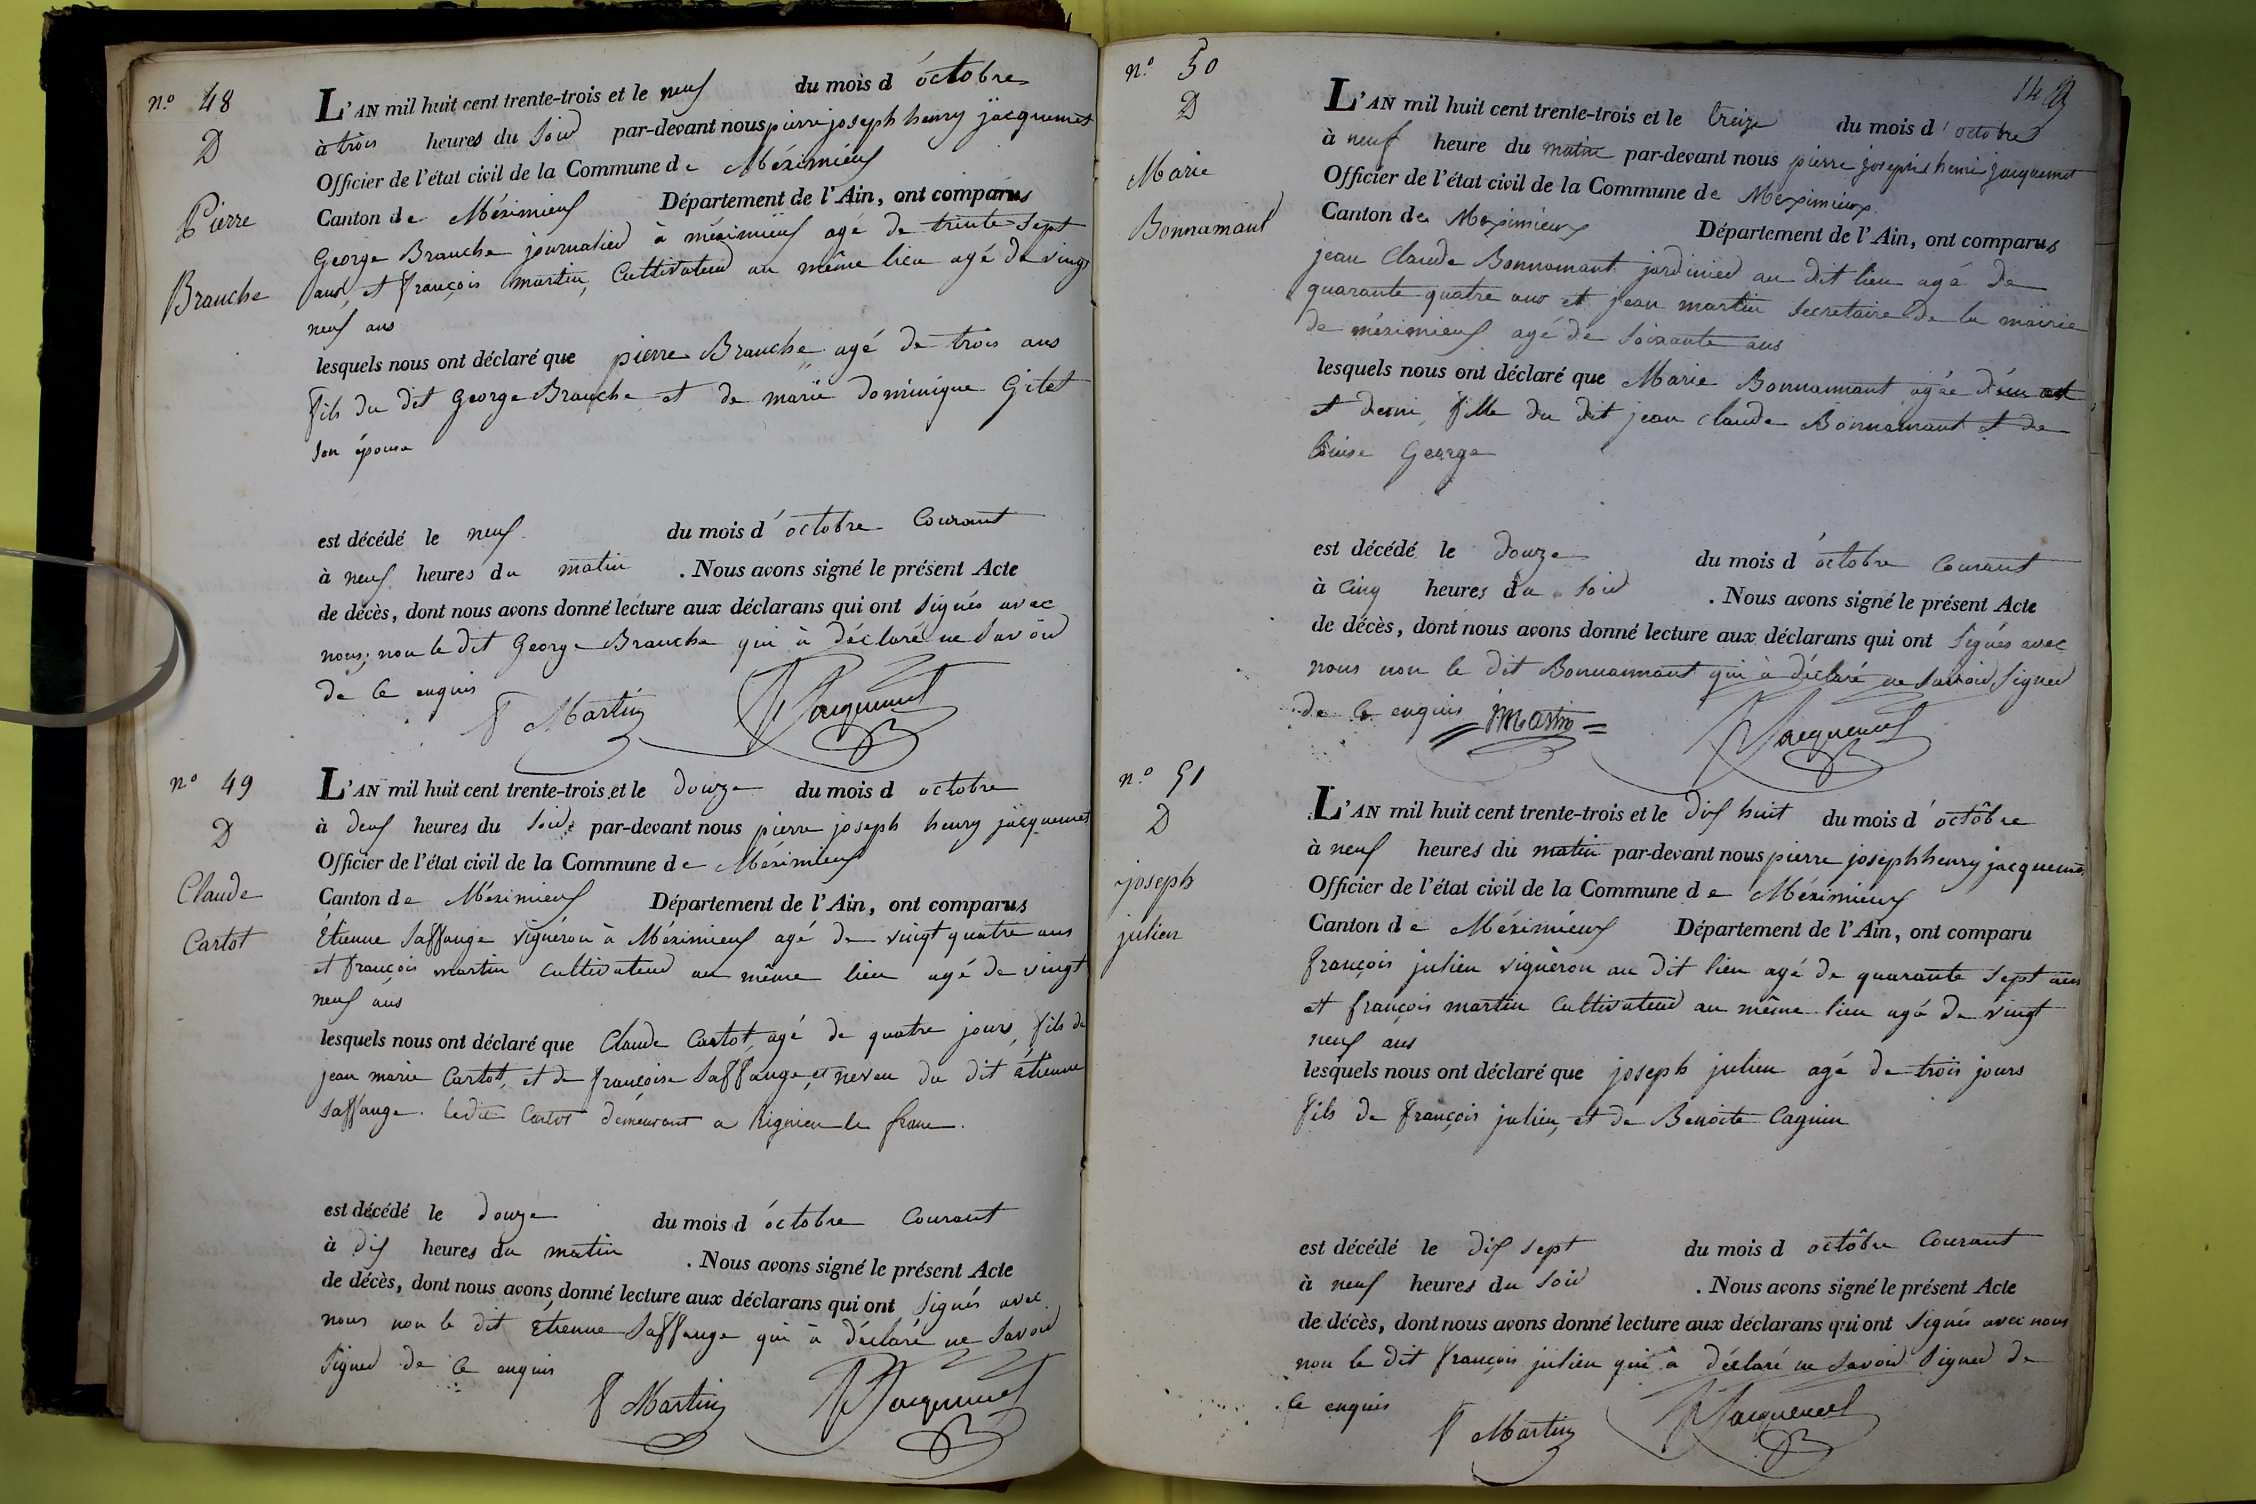 n.º 48
D
Pierre
Brauche
L'AN mil huit cent trente-trois et le neuf du mois d'octobre
à trois heures du soir par-devant nous pierre joseph henry jacquemet
Officier de l'état civil de la Commune de Méximieux
Canton de Méximieux Département de l'Ain, ont comparus
George Brauche journalier à méximieux agé de trente-sept
ans, et françois martin, Cultivateur au même lieu agé de vingt
neuf ans
lesquels nous ont déclaré que pierre Brauche agé de trois ans
fils du dit George Brauche et de marie dominique Gitet
son épouse
est décédé le neuf du mois d'octobre Courant
à neuf heures du matin . Nous avons signé le présent Acte
de décès, dont nous avons donné lecture aux déclarans qui ont signés avec
nous, non le dit George Brauche qui à déclaré ne savoir
de ce enquis
f Martin Jacquemet
n.º 49
D
Claude
Cartot
L'AN mil huit cent trente-trois et le douze du mois d octobre
à deux heures du soir par-devant nous pierre joseph henry jacquemet
Officier de l'état civil de la Commune de Méximieux
Canton de Méximieux Département de l'Ain, ont comparus
Etienne Saffange vignéron à Méximieux agé de vingt quatre ans
et françois martin cultivateur au même lieu agé de vingt
neuf ans
lesquels nous ont déclaré que Claude Cartot agé de quatre jours, fils de
jean marie Cartot, et de françoise Saffange, et neveu du dit étienne
Saffange. ledit Cartot démeurant a Rignieu le franc.
est décédé le douze du mois d'octobre Courant
à dix heures du matin . Nous avons signé le présent Acte
de décès, dont nous avons donné lecture aux déclarans qui ont signés avec
nous non le dit Etienne Saffange qui à déclaré ne savoir
signer de ce enquis
f Martin Jacquemet
14
n.º 50
D
Marie
Bonnamant
L'AN mil huit cent trente-trois et le treize du mois d'octobre
à neuf heure du matin par-devant nous pierre joseph henri jacquemet
Officier de l'état civil de la Commune de Meximieux
Canton de Meximieux Département de l'Ain, ont comparus
jean Claude Bonnamant jardinier au dit lieu agé de
quarante quatre ans et jean martin secretaire de la mairie
de méximieux agé de soixante ans
lesquels nous ont déclaré que Marie Bonnamant agée d'un an
et demi, fille du dit jean claude Bonnamant et de
louise George
est décédé le douze du mois d'octobre Courant
à cinq heures du soir . Nous avons signé le présent Acte
de décès, dont nous avons donné lecture aux déclarans qui ont signés avec
nous non le dit Bonnamant qui à déclaré ne savoir signer
de ce enquis jmartin Jacquemet
n.º 51
D
joseph
julien
L'AN mil huit cent trente-trois et le dix huit du mois d'octôbre
à neuf heures du matin par-devant nous pierre joseph henry jacquemet
Officier de l'état civil de la Commune de Méximieux
Canton de Méximieux Département de l'Ain, ont comparu
françois julien vignèron au dit lieu agé de quarante sept ans
et françois martin Cultivateur au même lieu agé de vingt
neuf ans
lesquels nous ont déclaré que joseph julien agé de trois jours
fils de françois julien, et de Benoite Cagnin
est décédé le dix sept du mois d octôbre Courant
à neuf heures du soir . Nous avons signé le présent Acte
de décès, dont nous avons donné lecture aux déclarans qui ont signés avec nous
non le dit françois julien qui à déclaré ne savoir signer de
ce enquis
f Martin Jacquemet